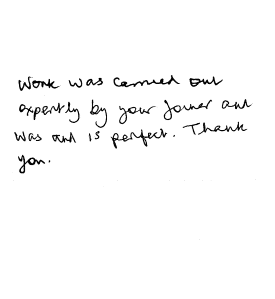 Work was carried out
expertly by your Joiner and
was and is perfect. Thank
you.